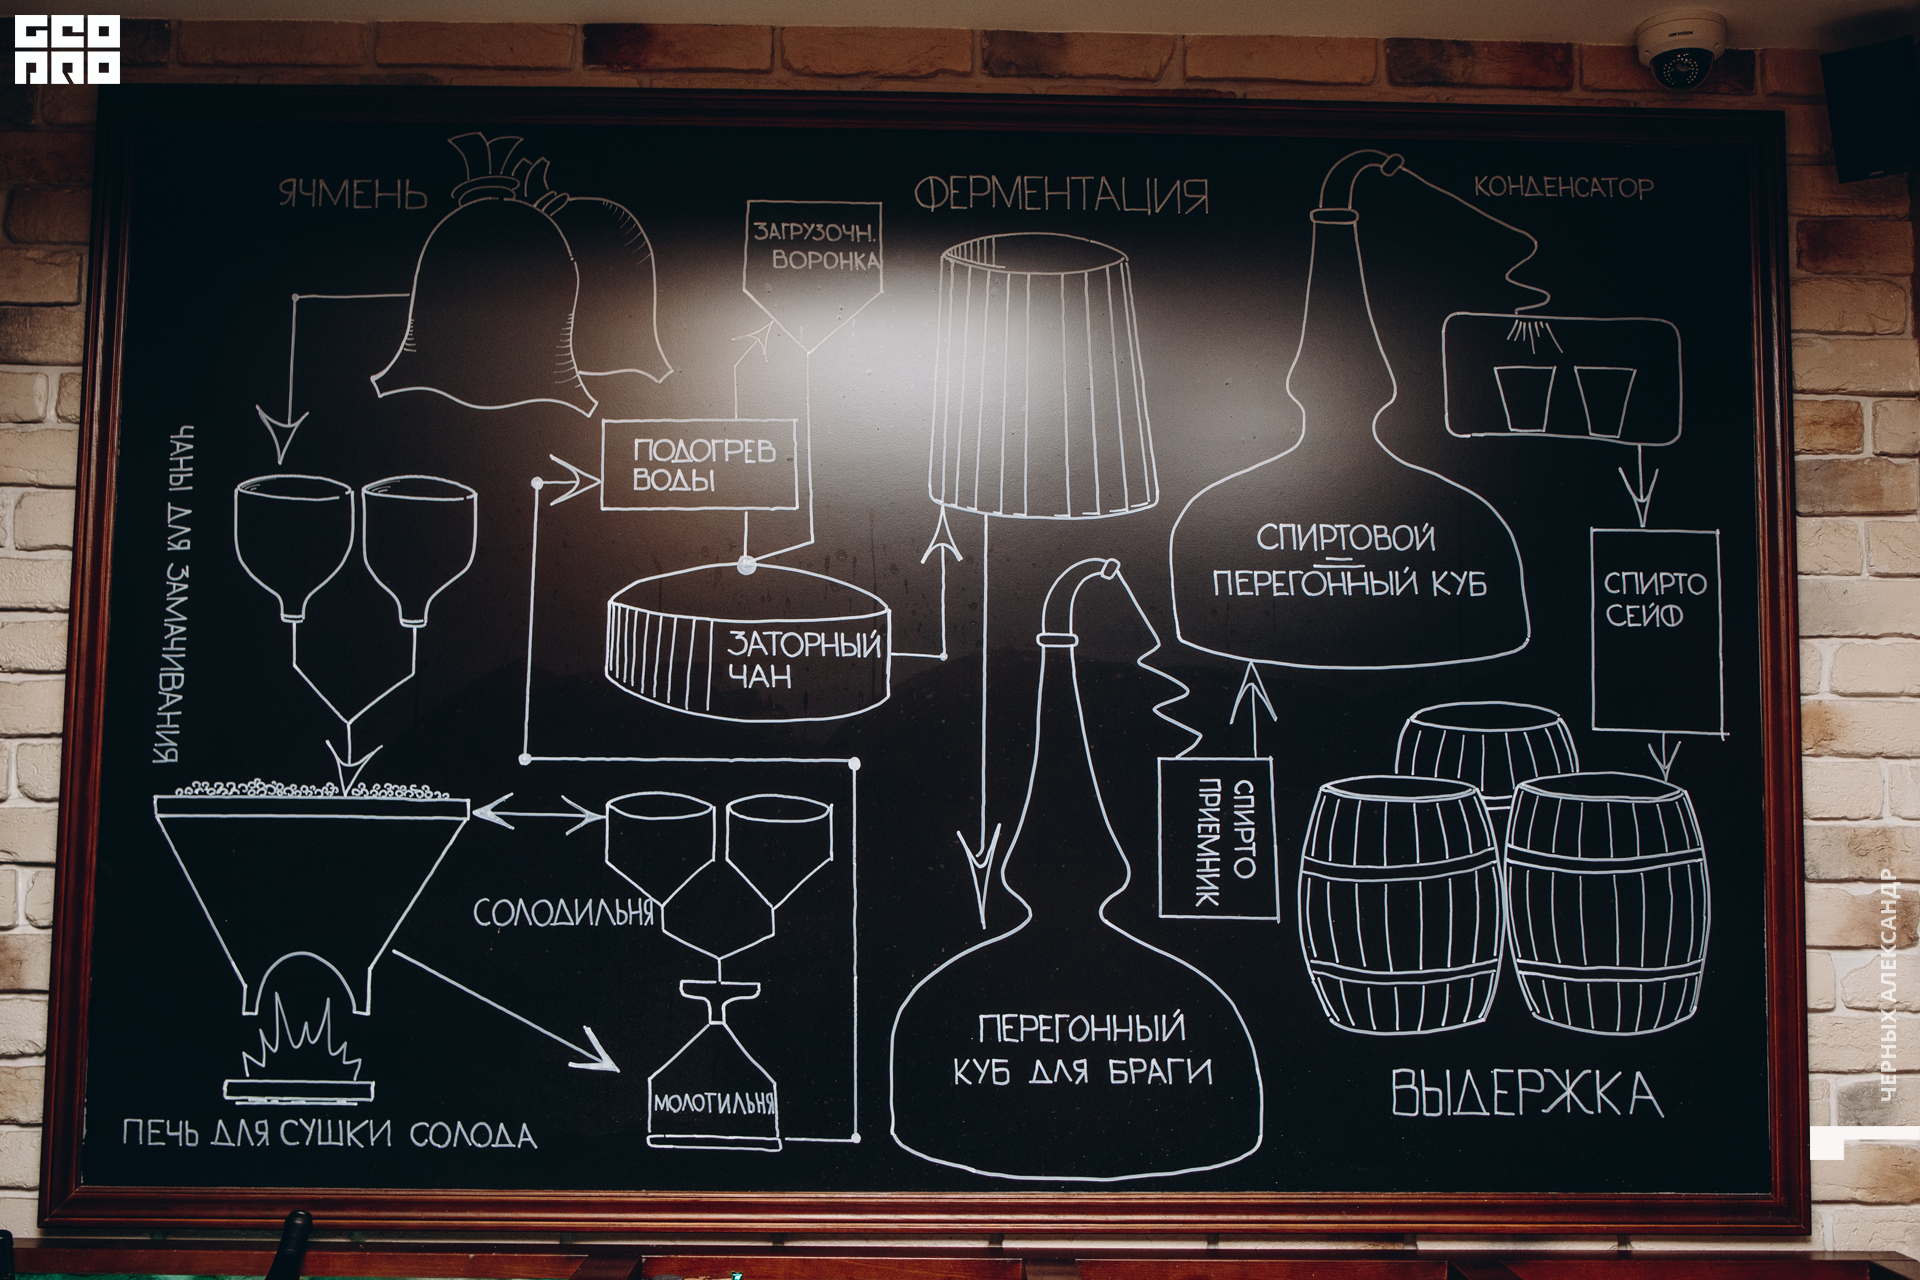 GEO
PRO
ЯЧМЕНЬ
ФЕРМЕНТАЦИЯ
КОНДЕНСАТОР
ЗАГРУЗОЧН.
ВОРОНКА
ЧАНЫ ДЛЯ ЗАМАЧИВАНИЯ
ПОДОГРЕВ
ВОДЫ
СПИРТОВОЙ
ПЕРЕГОННЫЙ КУБ
СПИРТО
СЕЙФ
ЗАТОРНЫЙ
ЧАН
СПИРТО
ПРИЕМНИК
СОЛОДИЛЬНЯ
ПЕРЕГОННЫЙ
КУБ ДЛЯ БРАГИ
МОЛОТИЛЬНЯ
ВЫДЕРЖКА
ПЕЧЬ ДЛЯ СУШКИ СОЛОДА
ЧЕРНЫХ АЛЕКСАНДР